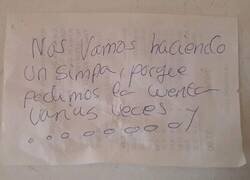 Nos vamos haciendo
un simpa, porque
pedimos la cuenta
varias veces y
. . o o o o o o o